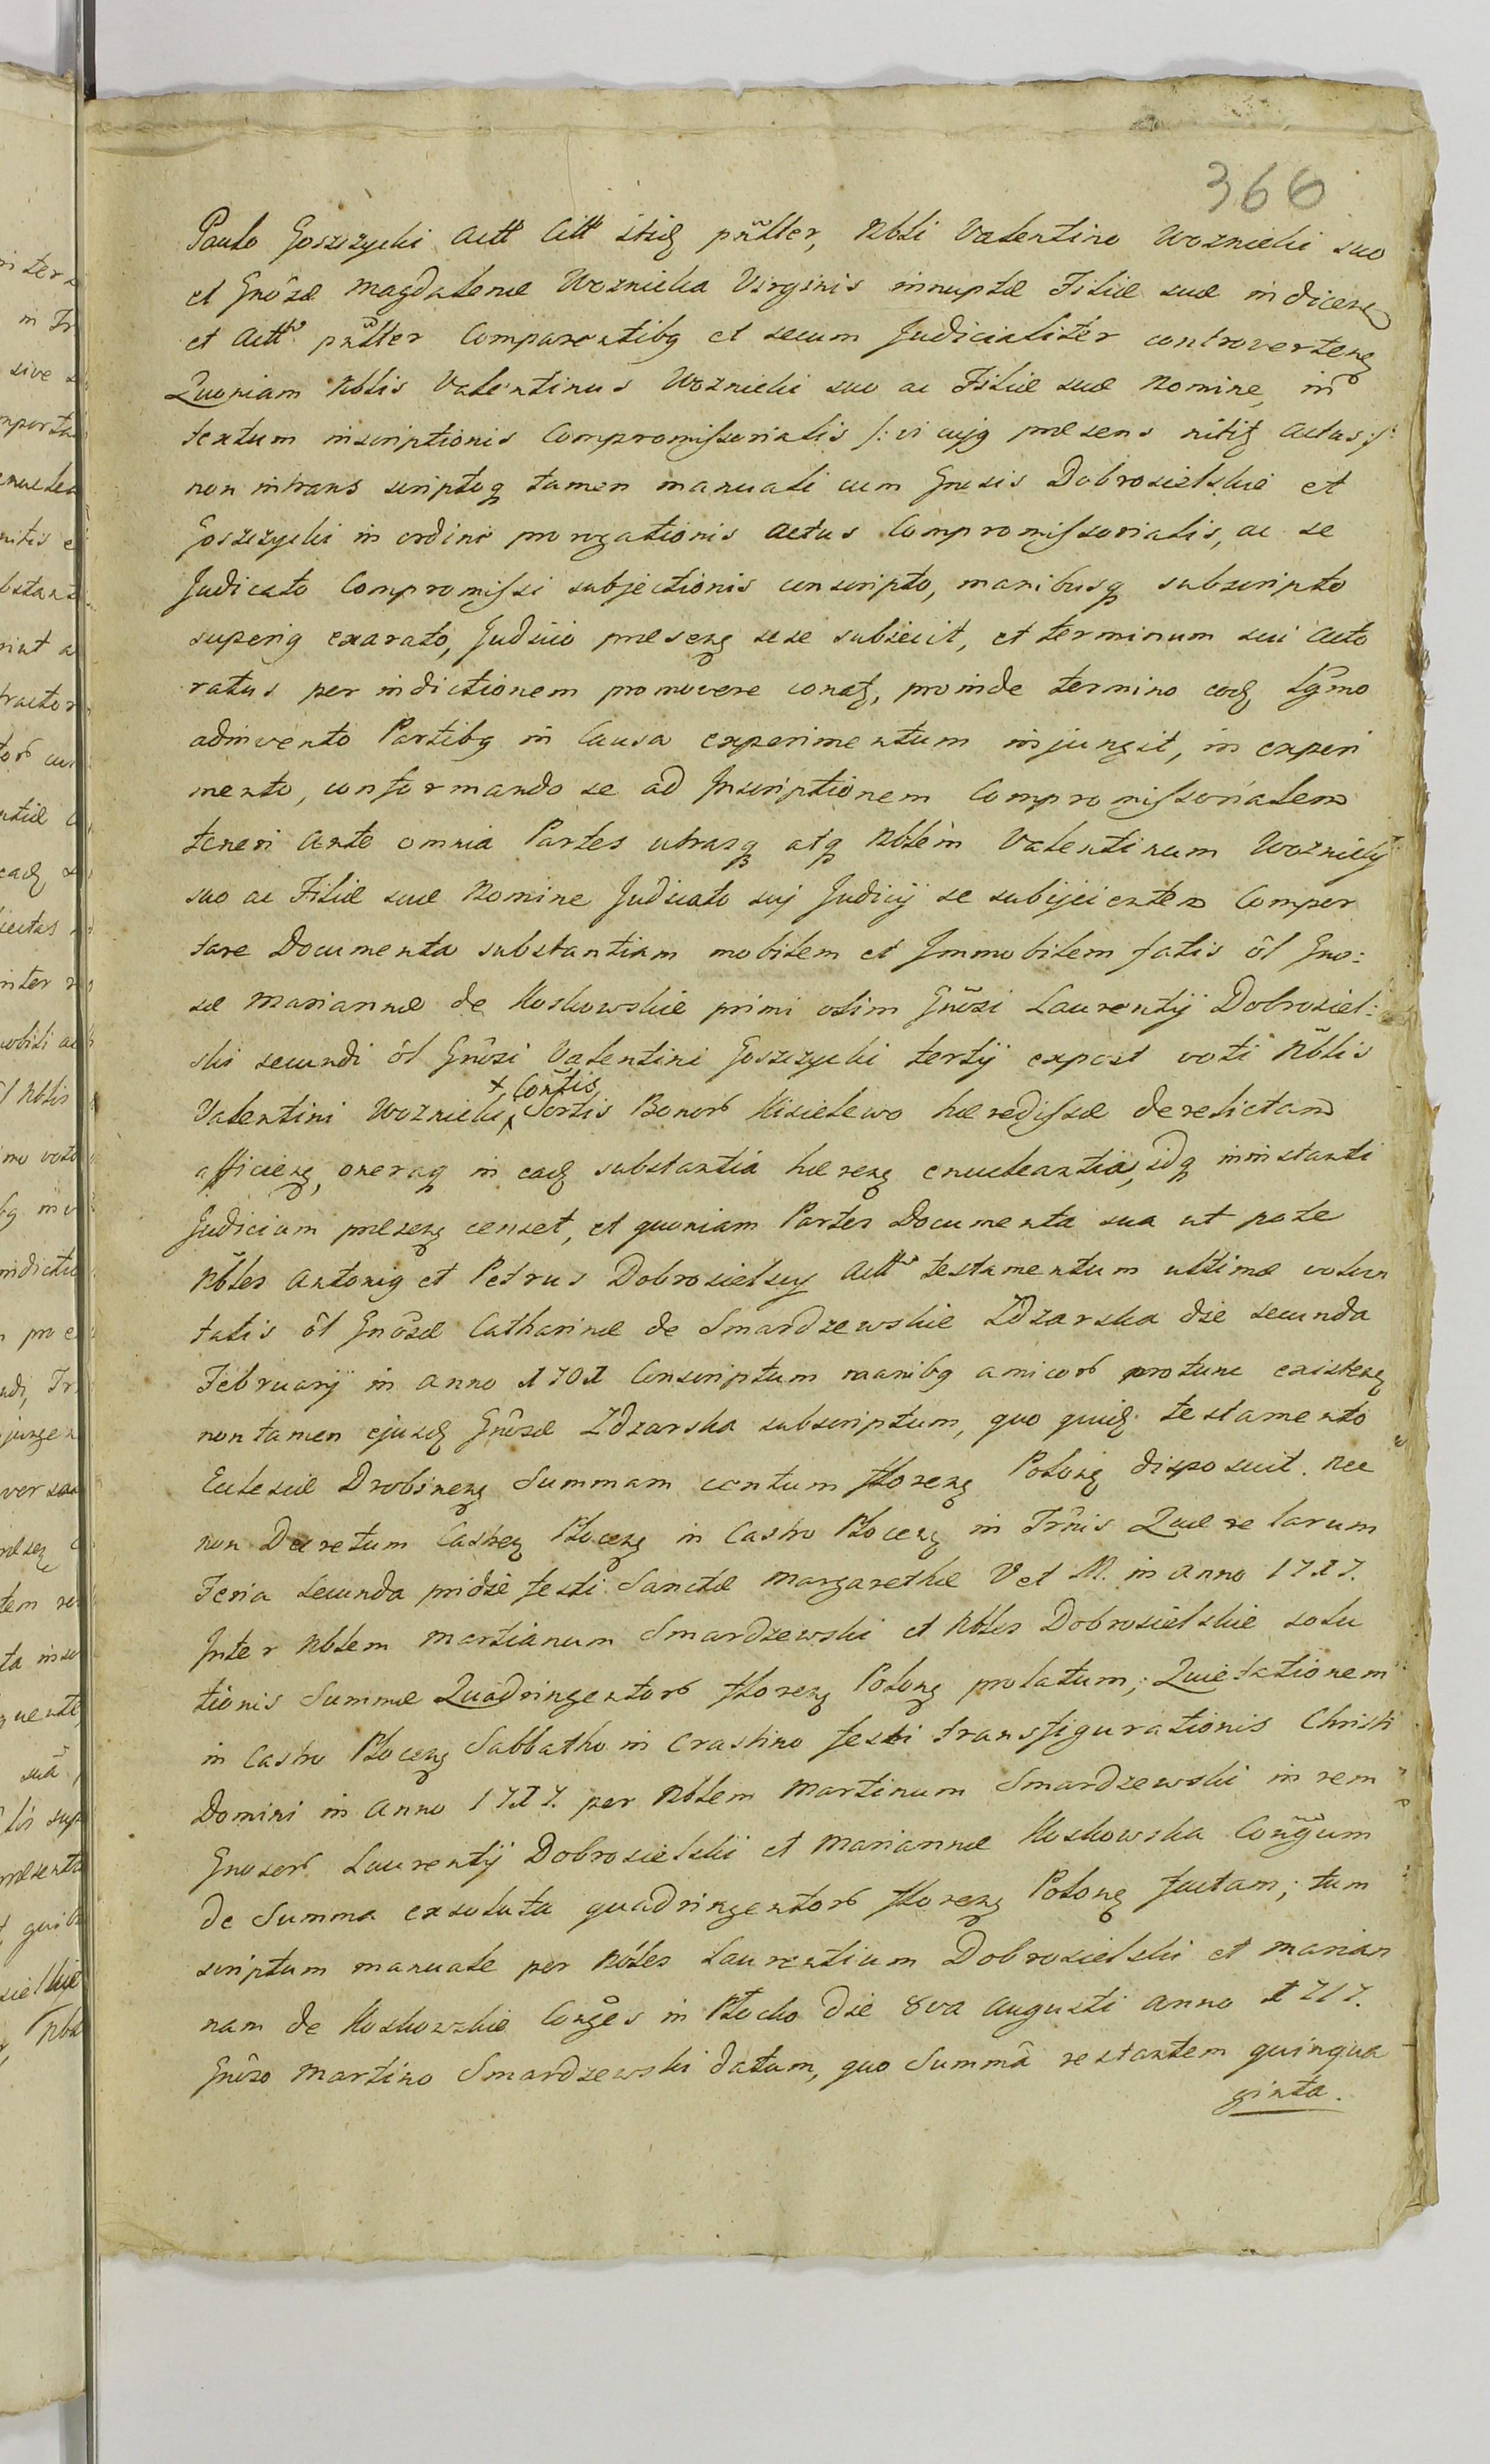 366
Paulo Goszczycki Actt Citt itid pnlter, Nbli Valentino Woznicki suo
et Gnosæ Magdalenæ Woznicka Virginis innuptæ Filiæ suæ indicen
et Actt pnlter Comparentibg et secum Judicialiter controverten
Quoniam Nblis Valentinus Woznicki suo ac Filiæ suæ Nomine, in
textum inscriptionis Compromissorialis /: vi cujg præsens nitit actus :/
non intrans scriptoq tamen manuali cum Gnesis Dobrosielskie et
Goszczycki in ordine prorogationis Actus Compromissorialis, ac se
Judicato Compromissi subjectionis conscripto, manibusq subscripto
superig exarato, Judicio præsen sese subiecit, et terminum sui Acto
ratus per indictionem promovere conat, proinde termino eod lgmo
adinvento Partibg in Causa experimentum injungit, in experi
mento, conformando se ad Inscriptionem Compromissorialem
teneri Ante omnia Partes utrasq atq Nblem Valentinum Woznicki
suo ac Filiæ suæ Nomine Judicato suj Judicij se subijcientem Compor
tare Documenta substantiam mobilem et Immobilem fatis ol Gno:
sæ Mariannæ de Koskowskie primi olim Gnosi Laurentij Dobrosiel:
ski secundi ol Gnosi Valentini Goszczycki tertij expost voti Nblis
Valentini Woznicki + Contis Sortis Bonor Kisielewo hæredissæ derelictam
afficien, oneraq in ead substantia hæren enucleantia, idq ininstanti
Judicium præsen censet, et quoniam Partes Documenta sua ut pote
Nbles Antonig et Petrus Dobrosielscy Actt testamentum ultimæ volun
tatis ol Gnosæ Catharinæ de Smardzewskie Zdzarska die secunda
Februarij in Anno 1701 Conscriptum manibg amicor protunc existen
non tamen ejusd Gnosæ Zdzarska subscriptum, quo quid testamento
Ecclesiæ Drobinen Summam centum floren Polon disposuit. Nec
non Decretum Castren Plocen in Castro Plocen in Trnis Querelarum
Feria secunda pridie festi Sanctæ Margarethæ V et M. in Anno 1717.
Inter Nblem Martianum Smardzewski et Nbles Dobrosielskie solu
tionis Summæ Quadringentor floren Polon prolatum; Quietationem
in Castro Plocen Sabbatho in Crastino festi transfigurationis Christi
Domini in Anno 1717. per Nblem Martinum Smardzewski in rem
Gnosor Laurentij Dobrosielski et Mariannæ Koskowska Congum
de Summa exsoluta quadringentor floren Polon factam; tum
scriptum manuale per Nbles Laurentium Dobrosielski et Marian
nam de Koskowskie Conges in Plocko die 8va Augusti Anno 1717.
Gnoso Martino Smardzewski datum, quo Summa restantem quinqua
ginta.